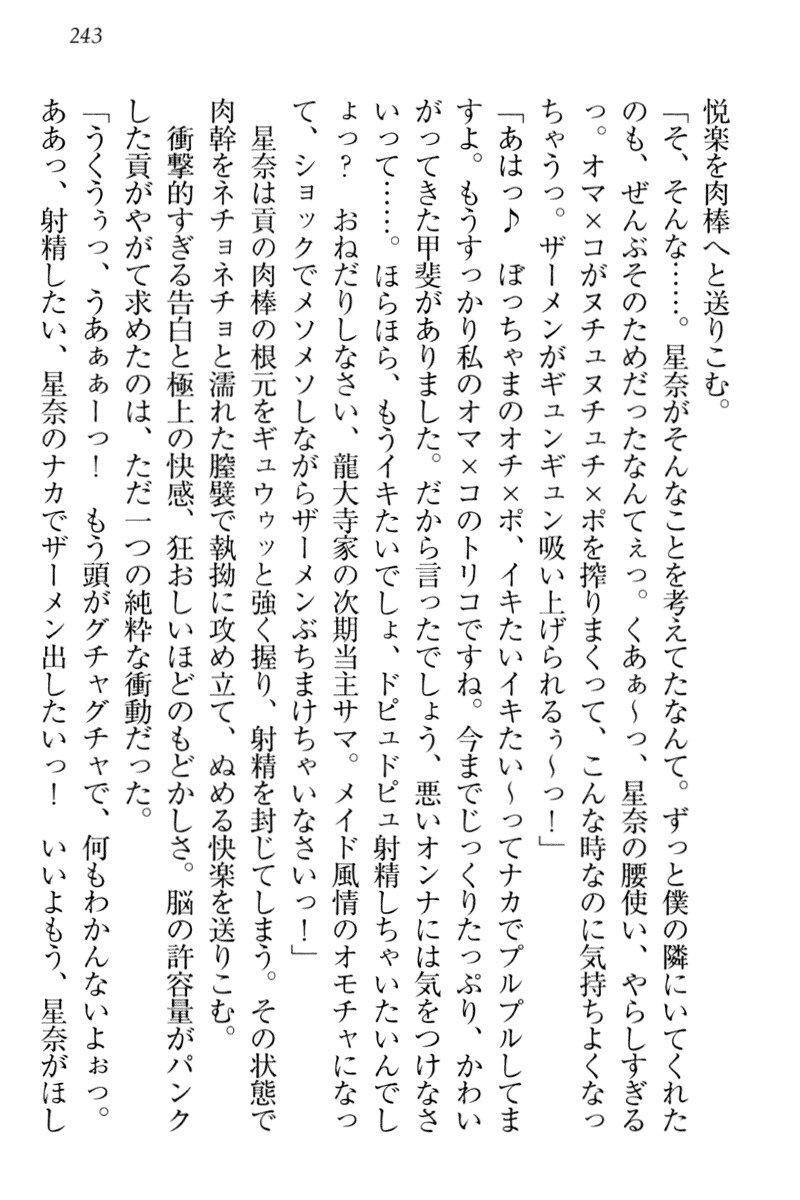 243
悦楽を肉棒へと送りこむ。
「そ、そんな……。星奈がそんなことを考えてたなんて。ずっと僕の隣にいてくれた
のも、ぜんぶそのためだったなんてぇっ。くあぁ〜っ、星奈の腰使い、やらしすぎる
っ。オマ×コがヌチュヌチュチ×ポを搾りまくって、こんな時なのに気持ちよくなっ
ちゃうっ。ザーメンがギュンギュン吸い上げられるぅ〜っ！」
「あはっ♪　ぼっちゃまのオチ×ポ、イキたいイキたい〜ってナカでプルプルしてま
すよ。もうすっかり私のオマ×コのトリコですね。今までじっくりたっぷり、かわい
がってきた甲斐がありました。だから言ったでしょう、悪いオンナには気をつけなさ
いって……。ほらほら、もうイキたいでしょ、ドピュドピュ射精しちゃいたいんでし
ょっ？　おねだりしなさい、龍大寺家の次期当主サマ。メイド風情のオモチャになっ
て、ショックでメソメソしながらザーメンぶちまけちゃいなさいっ！」
　星奈は貢の肉棒の根元をギュウゥッと強く握り、射精を封じてしまう。その状態で
肉幹をネチョネチョと濡れた膣襞で執拗に攻め立て、ぬめる快楽を送りこむ。
　衝撃的すぎる告白と極上の快感、狂おしいほどのもどかしさ。脳の許容量がパンク
した貢がやがて求めたのは、ただ一つの純粋な衝動だった。
「うくうぅっ、うあぁぁーっ！　もう頭がグチャグチャで、何もわかんないよぉっ。
ああっ、射精したい、星奈のナカでザーメン出したいっ！　いいよもう、星奈がほし